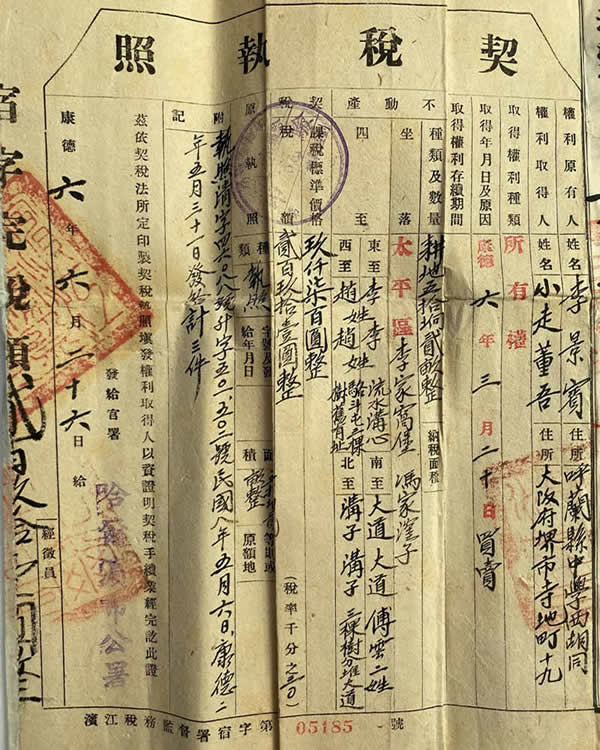 契稅執照
權利原有人 姓名 李景賓 住所 呼蘭縣中學西胡同
權利取得人 姓名 小走董吾 住所 大阪府堺市寺地町十九
取得權利種類 所有權
取得年月日及原因 康德六年三月二十日買賣
取得權利存續期間
不動產
種類及數量 耕地五拾貳畝整 納稅面積
坐落 太平區李家窩堡 馮家窪子
四至
東至 李姓李 流水溝心 南至 大道大道 傅雲二姓
西至 趙姓趙姓 北至 溝子溝子 三棵樹分堆大道
契稅
課稅標準價格 玖仟柒百圓整
稅額 貳百玖拾壹圓整 (稅率千分之三〇)
原執照
種類 執照
面積
原額地
附記
年五月三十一日發給計三件
茲依契稅法所定印製契稅執照填發權利取得人以資證明契稅手續業經完訖此證
發給官署 哈爾濱市公署
康德六年六月二十六日給
經徵員
濱江稅務監督署宿字第 05185 號
宿字完稅額貳百玖拾